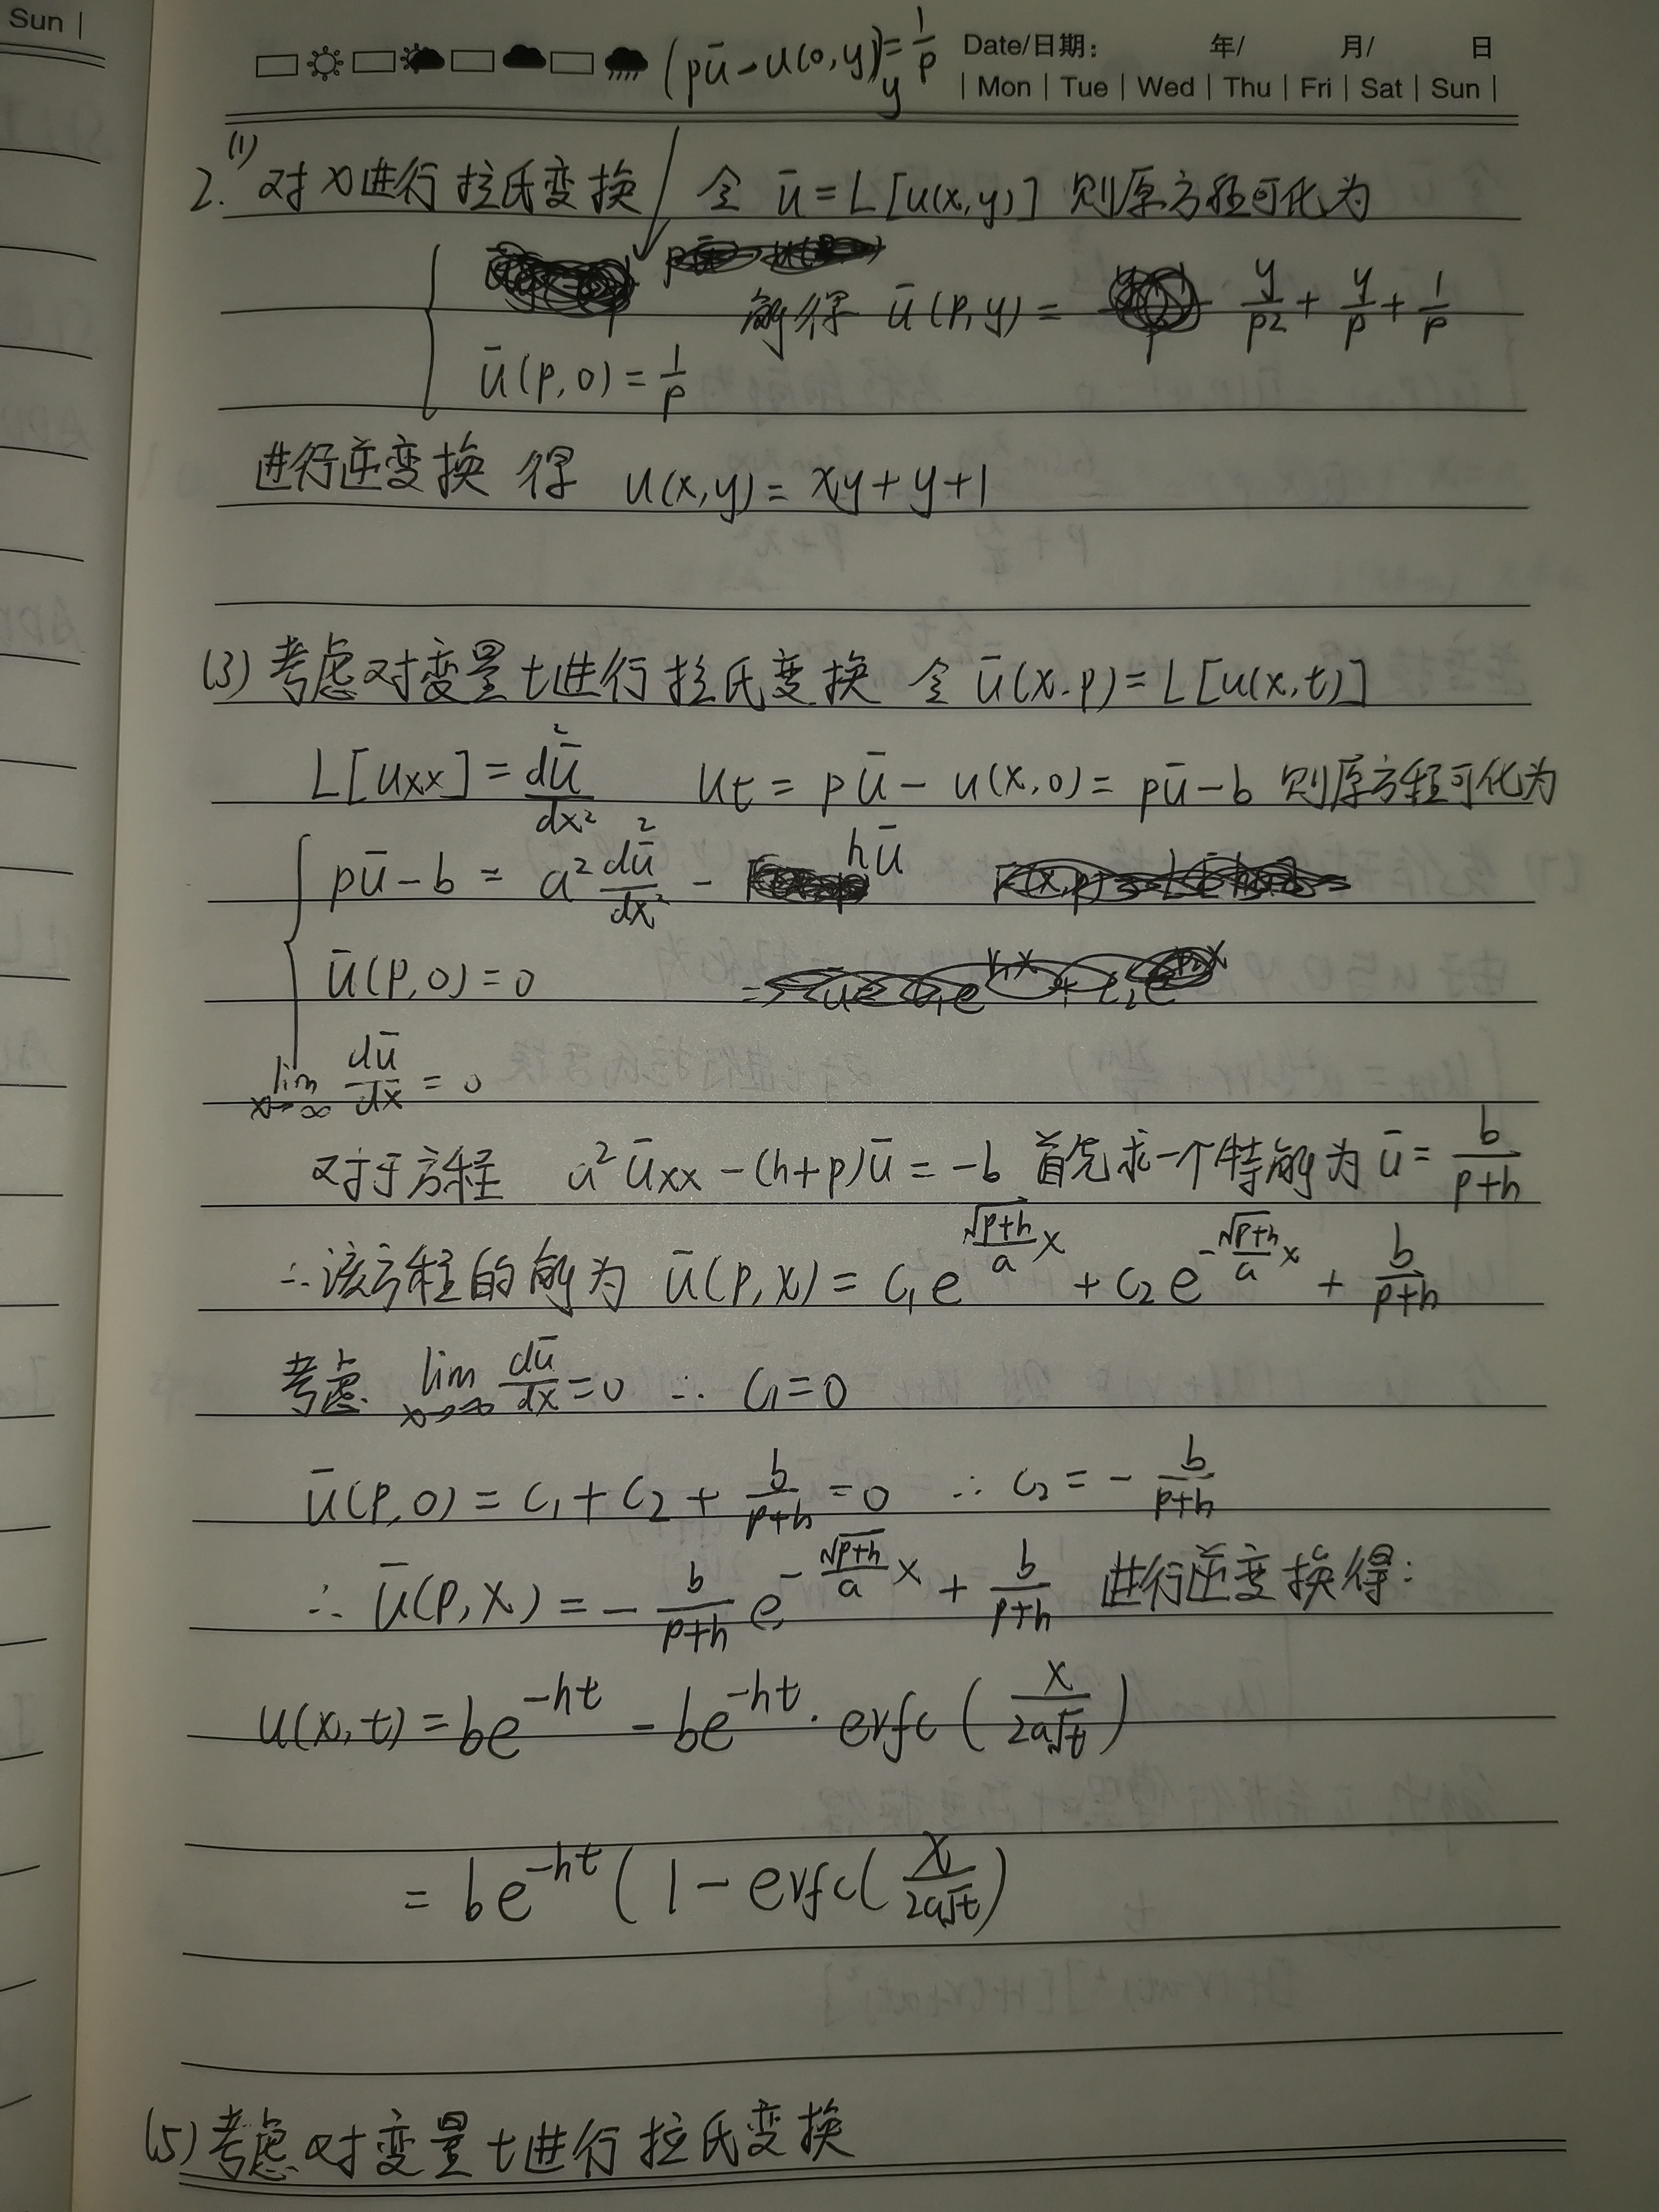 Sun |
(pū - u(0,y))_y = 1/p
Date/日期: 年/ 月/ 日
| Mon | Tue | Wed | Thu | Fri | Sat | Sun |
2. (1) 对x进行拉氏变换 令 ū = L[u(x,y)] 则原方程可化为
解得 ū(p,y) = y/p2 + y/p + 1/p
ū(p,0) = 1/p
进行逆变换 得 u(x,y) = xy + y + 1
(3) 考虑对变量t进行拉氏变换 令 ū(x.p) = L[u(x,t)]
L[uxx] = d²ū/dx² ut = pū - u(x,0) = pū - b 则原方程可化为
pū - b = a² d²ū/dx² - hū
ū(p,0) = 0
lim x→∞ dū/dx = 0
对于方程 a²ūxx - (h+p)ū = -b 首先求一个特解为 ū = b/(p+h)
∴ 该方程的解为 ū(p,x) = c₁e^(√(p+h)/a x) + c₂e^(-√(p+h)/a x) + b/(p+h)
考虑 lim x→∞ dū/dx = 0 ∴ c₁ = 0
ū(p,0) = c₁ + c₂ + b/(p+h) = 0 ∴ c₂ = - b/(p+h)
∴ ū(p,x) = - b/(p+h) e^(-√(p+h)/a x) + b/(p+h) 进行逆变换得:
u(x,t) = be^(-ht) - be^(-ht) · erfc(x/(2a√t))
= be^(-ht) (1 - erfc(x/(2a√t))
(5) 考虑对变量t进行拉氏变换